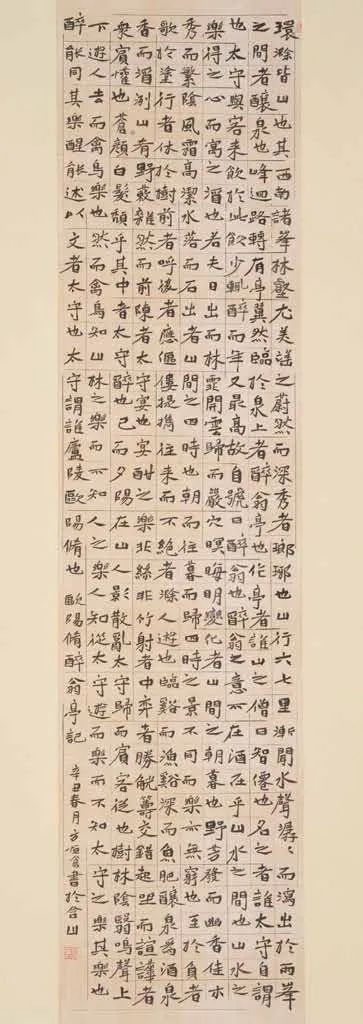 環滁皆山也其西南諸峯林壑尤美望之蔚然而深秀者瑯琊也山行六七里漸聞水聲潺〻而瀉出於兩峯
之間者釀泉也峰迴路轉有亭翼然臨於泉上者醉翁亭也作亭者誰山之僧曰智僊也名之者誰太守自謂
也太守與客来飲於此飲少輒醉而年又最高故自號曰醉翁也醉翁之意不在酒在乎山水之間也山水之
樂得之心而寓之酒也若夫日出而林霏開雲歸而巖穴暝晦明變化者山間之朝暮也野芳發而幽香佳木
秀而繁陰風霜高潔水落而石出者山間之四時也朝而往暮而歸四時之景不同而樂亦無窮也至於負者
歌於塗行者休於樹前者呼後者應傴僂提攜往来而不絕者滁人遊也臨谿而漁谿深而魚肥釀泉爲酒泉
香而酒洌山肴野蔌雜然而前陳者太守宴也宴酣之樂非絲非竹射者中弈者勝觥籌交錯起坐而諠譁者
衆賓懽也蒼顔白髮頹乎其中者太守醉也已而夕陽在山人影散亂太守歸而賓客從也樹林陰翳鳴聲上
下遊人去而禽鳥樂也然而禽鳥知山林之樂而不知人之樂人知從太守遊而樂而不知太守之樂其樂也
醉能同其樂醒能述以文者太守也太守謂誰廬陵歐陽脩也 歐陽脩醉翁亭記 辛丑春月方書於合山